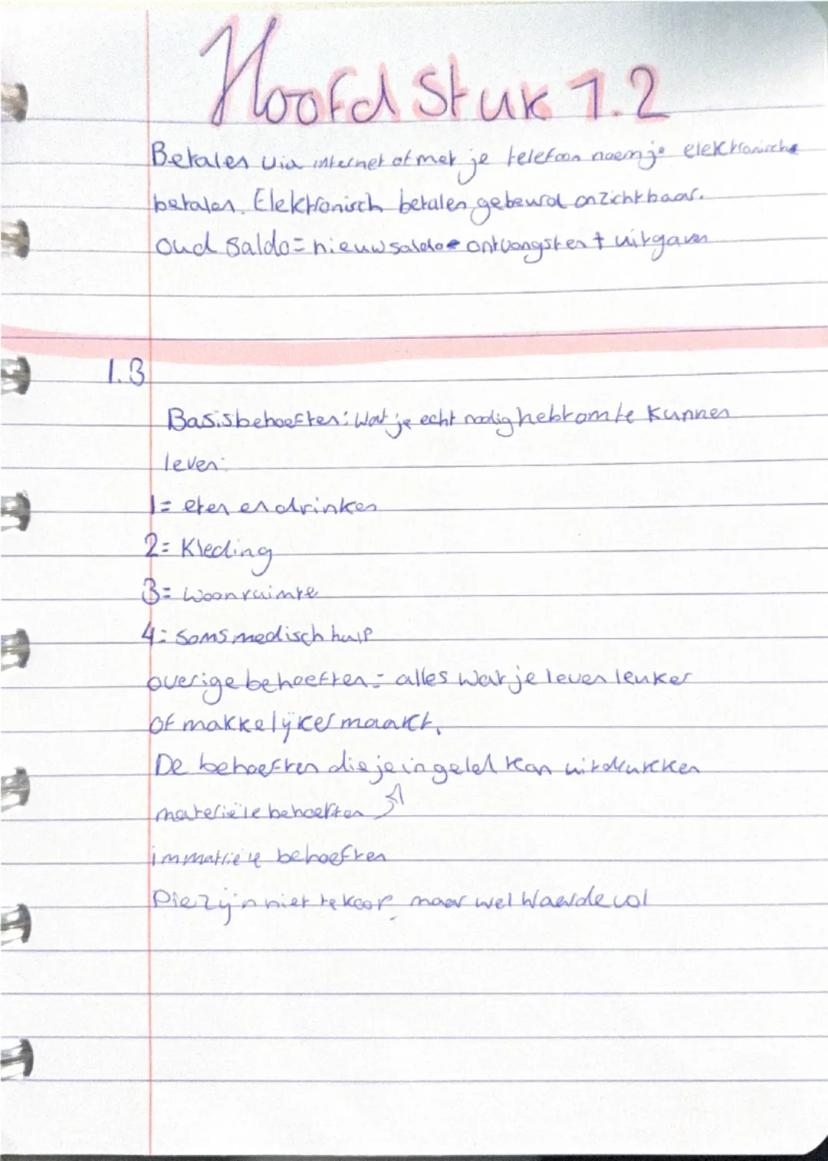 Hoofdstuk 1.2
Betalen via internet of met je telefoon noem je elektronische
betalen. Elektronisch betalen gebeurd onzichtbaar.
oud saldo = nieuw saldo - ontvangsten + uitgaven
1.3
Basisbehoeften: wat je echt nodig hebt om te kunnen
leven:
1= eten en drinken
2= Kleding
3= woonruimte
4= soms medisch hulp
overige behoeften = alles wat je leven leuker
of makkelijker maakt.
De behoeften die je in geld kan uitdrukken
materiële behoeften
immatriële behoeften
Die zijn niet te koop, maar wel waardevol